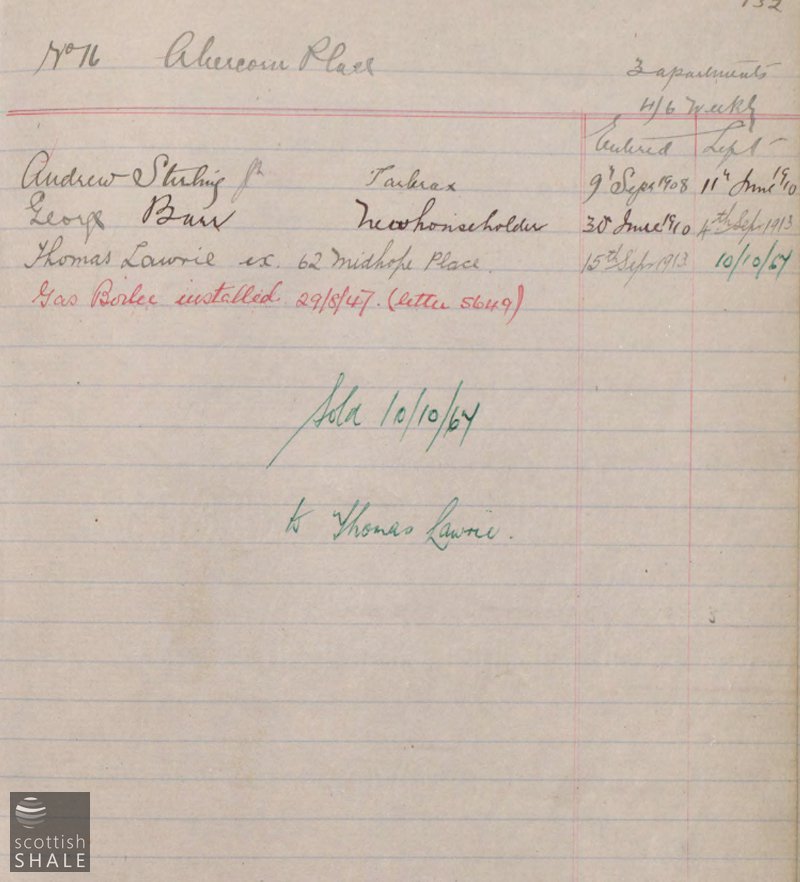 132
No 16 Abercorn Place
3 apartments
4/6 Weekly
Entered Left
Andrew Stirling Jr Tarbrax 9th Sept 1908 11th June 1910
George Barr New householder 30 June 1910 4th Sep. 1913
Thomas Lawrie ex. 62 Midhope Place. 15th Sep. 1913 10/10/67
Gas Boiler installed 29/8/47. (letter 5649)
Sold 10/10/67
to Thomas Lawrie.
scottish
SHALE